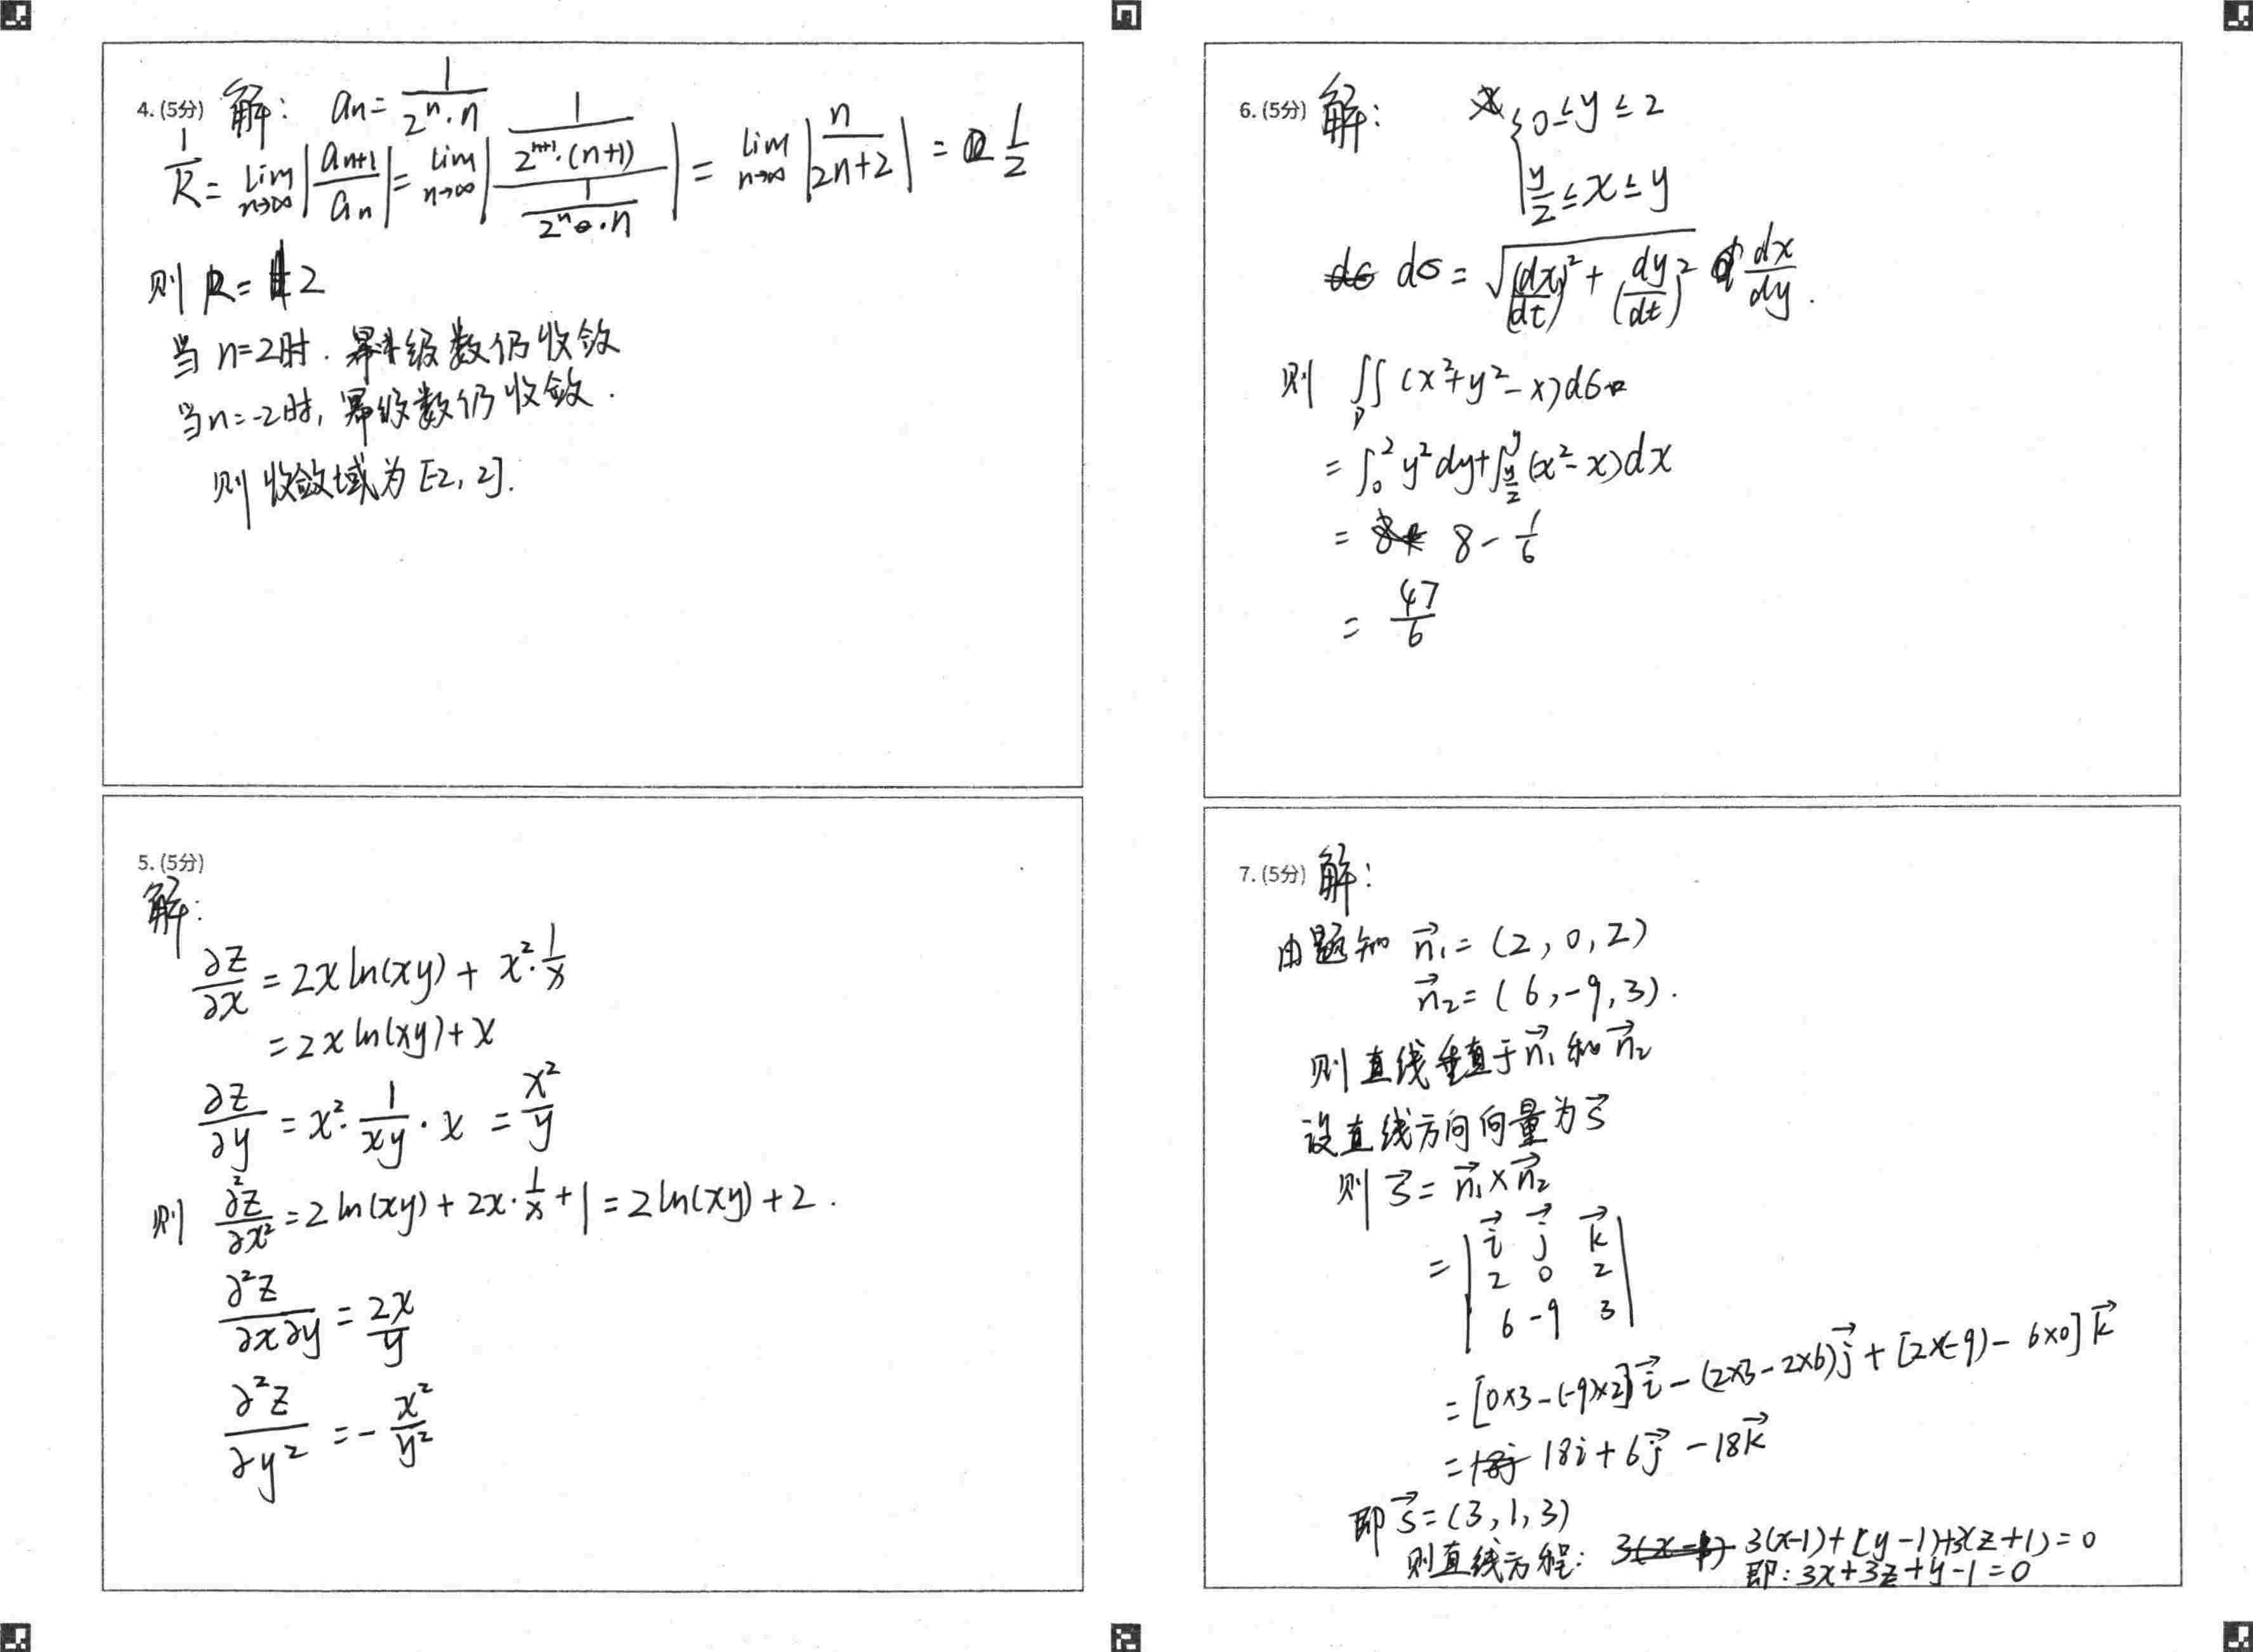 4. (5分) 解: aₙ = 1/(2ⁿ·n)
1/R = lim_{n→∞} |aₙ₊₁/aₙ| = lim_{n→∞} |(1/(2ⁿ⁺¹·(n+1)))/(1/(2ⁿ·n))| = lim_{n→∞} |n/(2n+2)| = 1/2
则 R = 2
当 n=2时. 幂级数仍收敛
当n=-2时, 幂级数仍收敛.
则收敛域为 [-2, 2].
5. (5分)
解:
∂z/∂x = 2x ln(xy) + x²·1/x
= 2x ln(xy) + x
∂z/∂y = x²·1/(xy)·x = x²/y
则 ∂²z/∂x² = 2 ln(xy) + 2x·1/x + 1 = 2 ln(xy) + 2.
∂²z/∂x∂y = 2x/y
∂²z/∂y² = -x²/y²
6. (5分) 解:
{ 0 ≤ y ≤ 2
y/2 ≤ x ≤ y
dσ = √((dx/dt)² + (dy/dt)²) dx/dy.
则 ∬_D (x²+y²-x)dσ
= ∫₀² y²dy + ∫_{y/2}^{y} (x²-x)dx
= 8 - 1/6
= 47/6
7. (5分) 解:
由题知 n⃗₁ = (2, 0, 2)
n⃗₂ = (6, -9, 3).
则直线垂直于 n⃗₁ 和 n⃗₂
设直线方向向量为 s⃗
则 s⃗ = n⃗₁×n⃗₂
= | i⃗ j⃗ k⃗
2 0 2
6 -9 3 |
= [0×3-(-9)×2]i⃗ - (2×3-2×6)j⃗ + [2×(-9)-6×0]k⃗
= 18i + 6j⃗ - 18k⃗
即 s⃗ = (3, 1, 3)
则直线方程: 3(x-1)+(y-1)+3(z+1)=0
即: 3x+3z+y-1=0